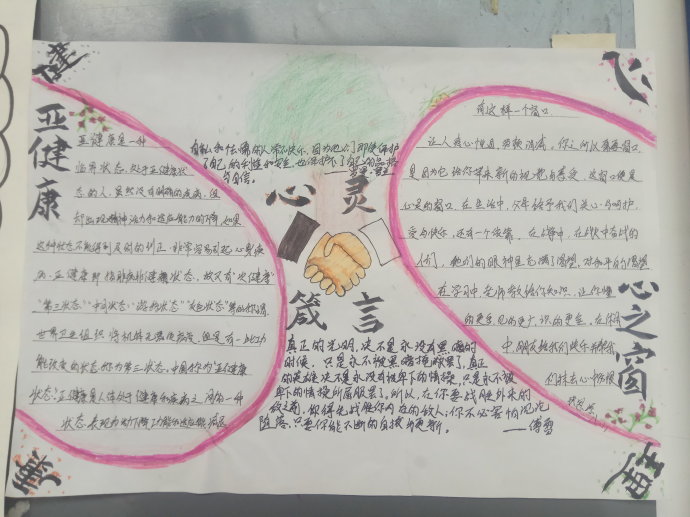 健
心
亚健康
亚健康是一种
临界状态,处于亚健康状
态的人,虽然没有明确的疾病,但
却出现精神活力和适应能力的下降,如果
这种状态不能得到及时的纠正,非常容易引起心身疾
病,亚健康即指非病非健康状态,故又有“次健康”
“第三状态”“中间状态”“游移状态”“灰色状态”等的称谓
世界卫生组织将机体无器质性病变,但是有一些功
能改变的状态称为第三状态,中国称为“亚健康
状态”亚健康是人体处于健康和疾病之间的一种
状态,表现为
自私和怯懦的人常不快乐,因为他们即使保护
了自己的利益和安全,也保护不了自己的品格
与自信。
心灵
箴言
真正的光明,决不是永没有黑暗的
时候,只是永不被黑暗掩蔽罢了,真正
的英雄决不是永没有卑下的情操,只是永不被
卑下的情操所屈服罢了,所以,在你要战胜外来的
敌之前,你得先战胜你内在的敌人;你不必害怕沉沦
堕落,只要你能不断的自拔与更新。
——傅雷
有这样一个窗口
让人赏心悦目
是因为它给你带来新的视觉与享受,这窗口便是
心灵的窗口,在生活中,父母给予我们关心与呵护,
爱与快乐,还有一个依靠,在战争中
人们,他们的眼神里充满了渴望,对和平的渴望
在学习中,老师教给你知识,让你懂
的更多,见的更广,识的更多
心之窗
康